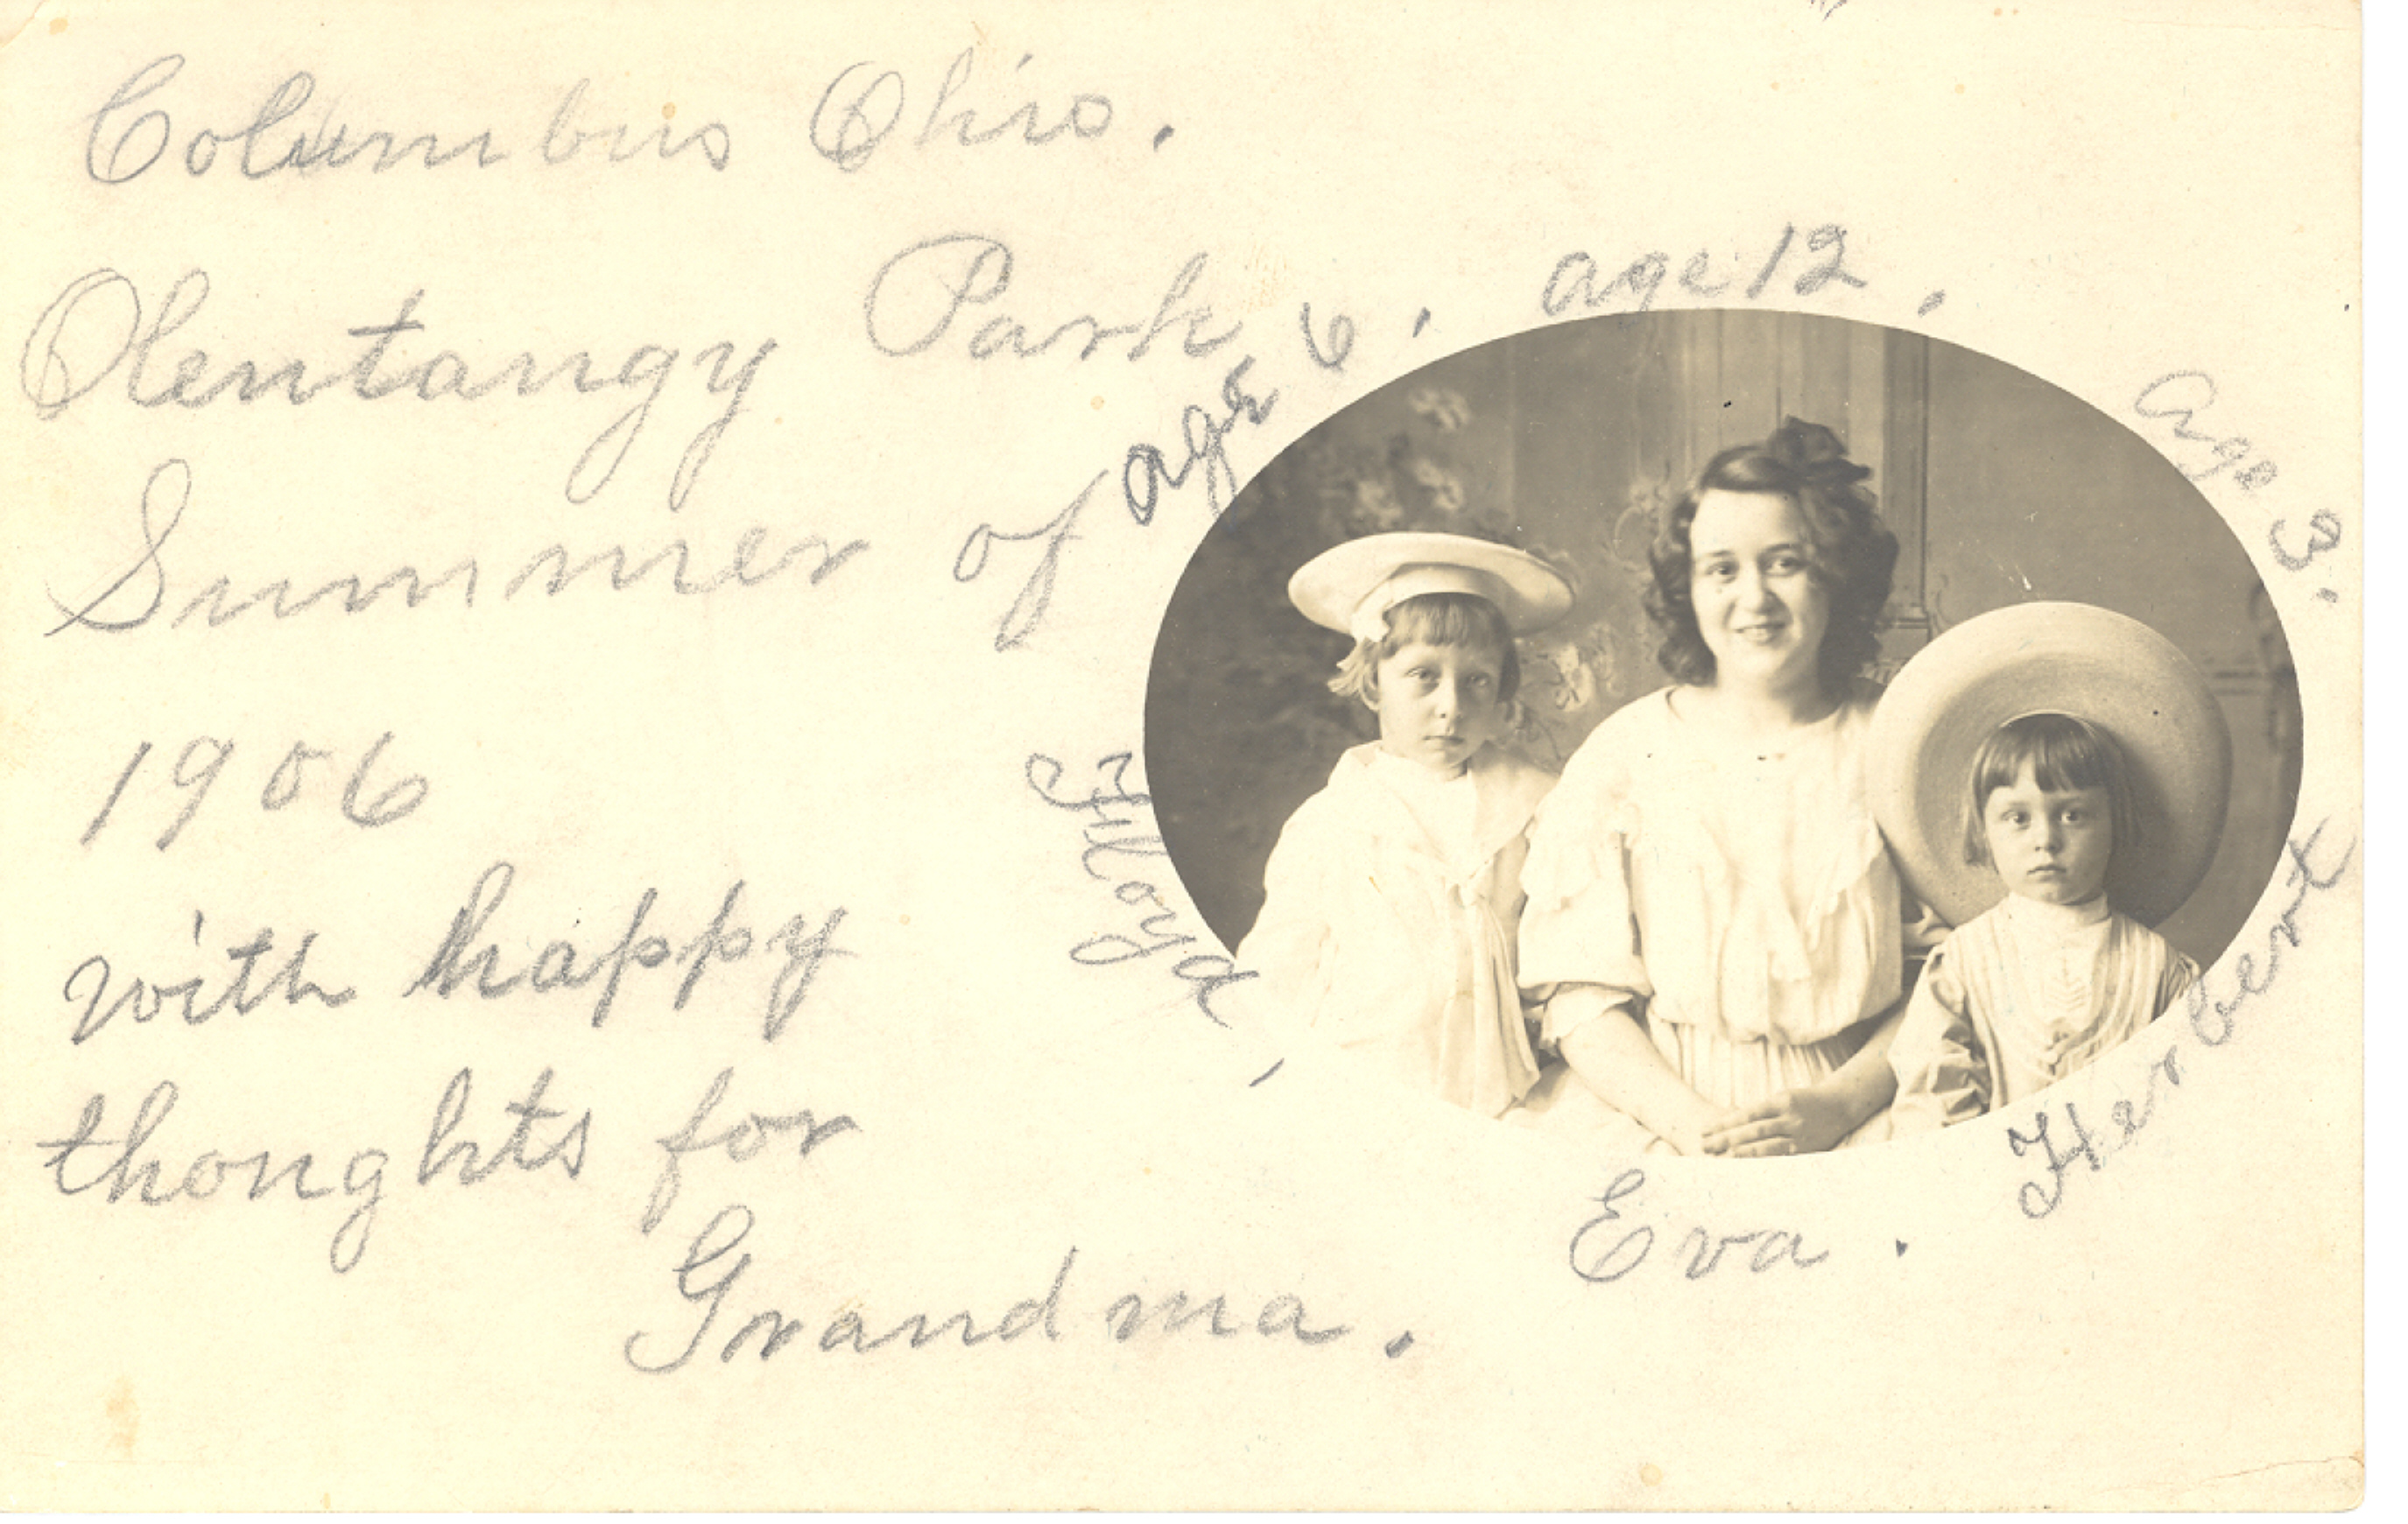 Columbus Ohio.
Olentangy Park
Summer of
1906
with happy
thoughts for
Grandma.
age 6.
age 12.
age 3.
Floyd,
Eva.
Herbert